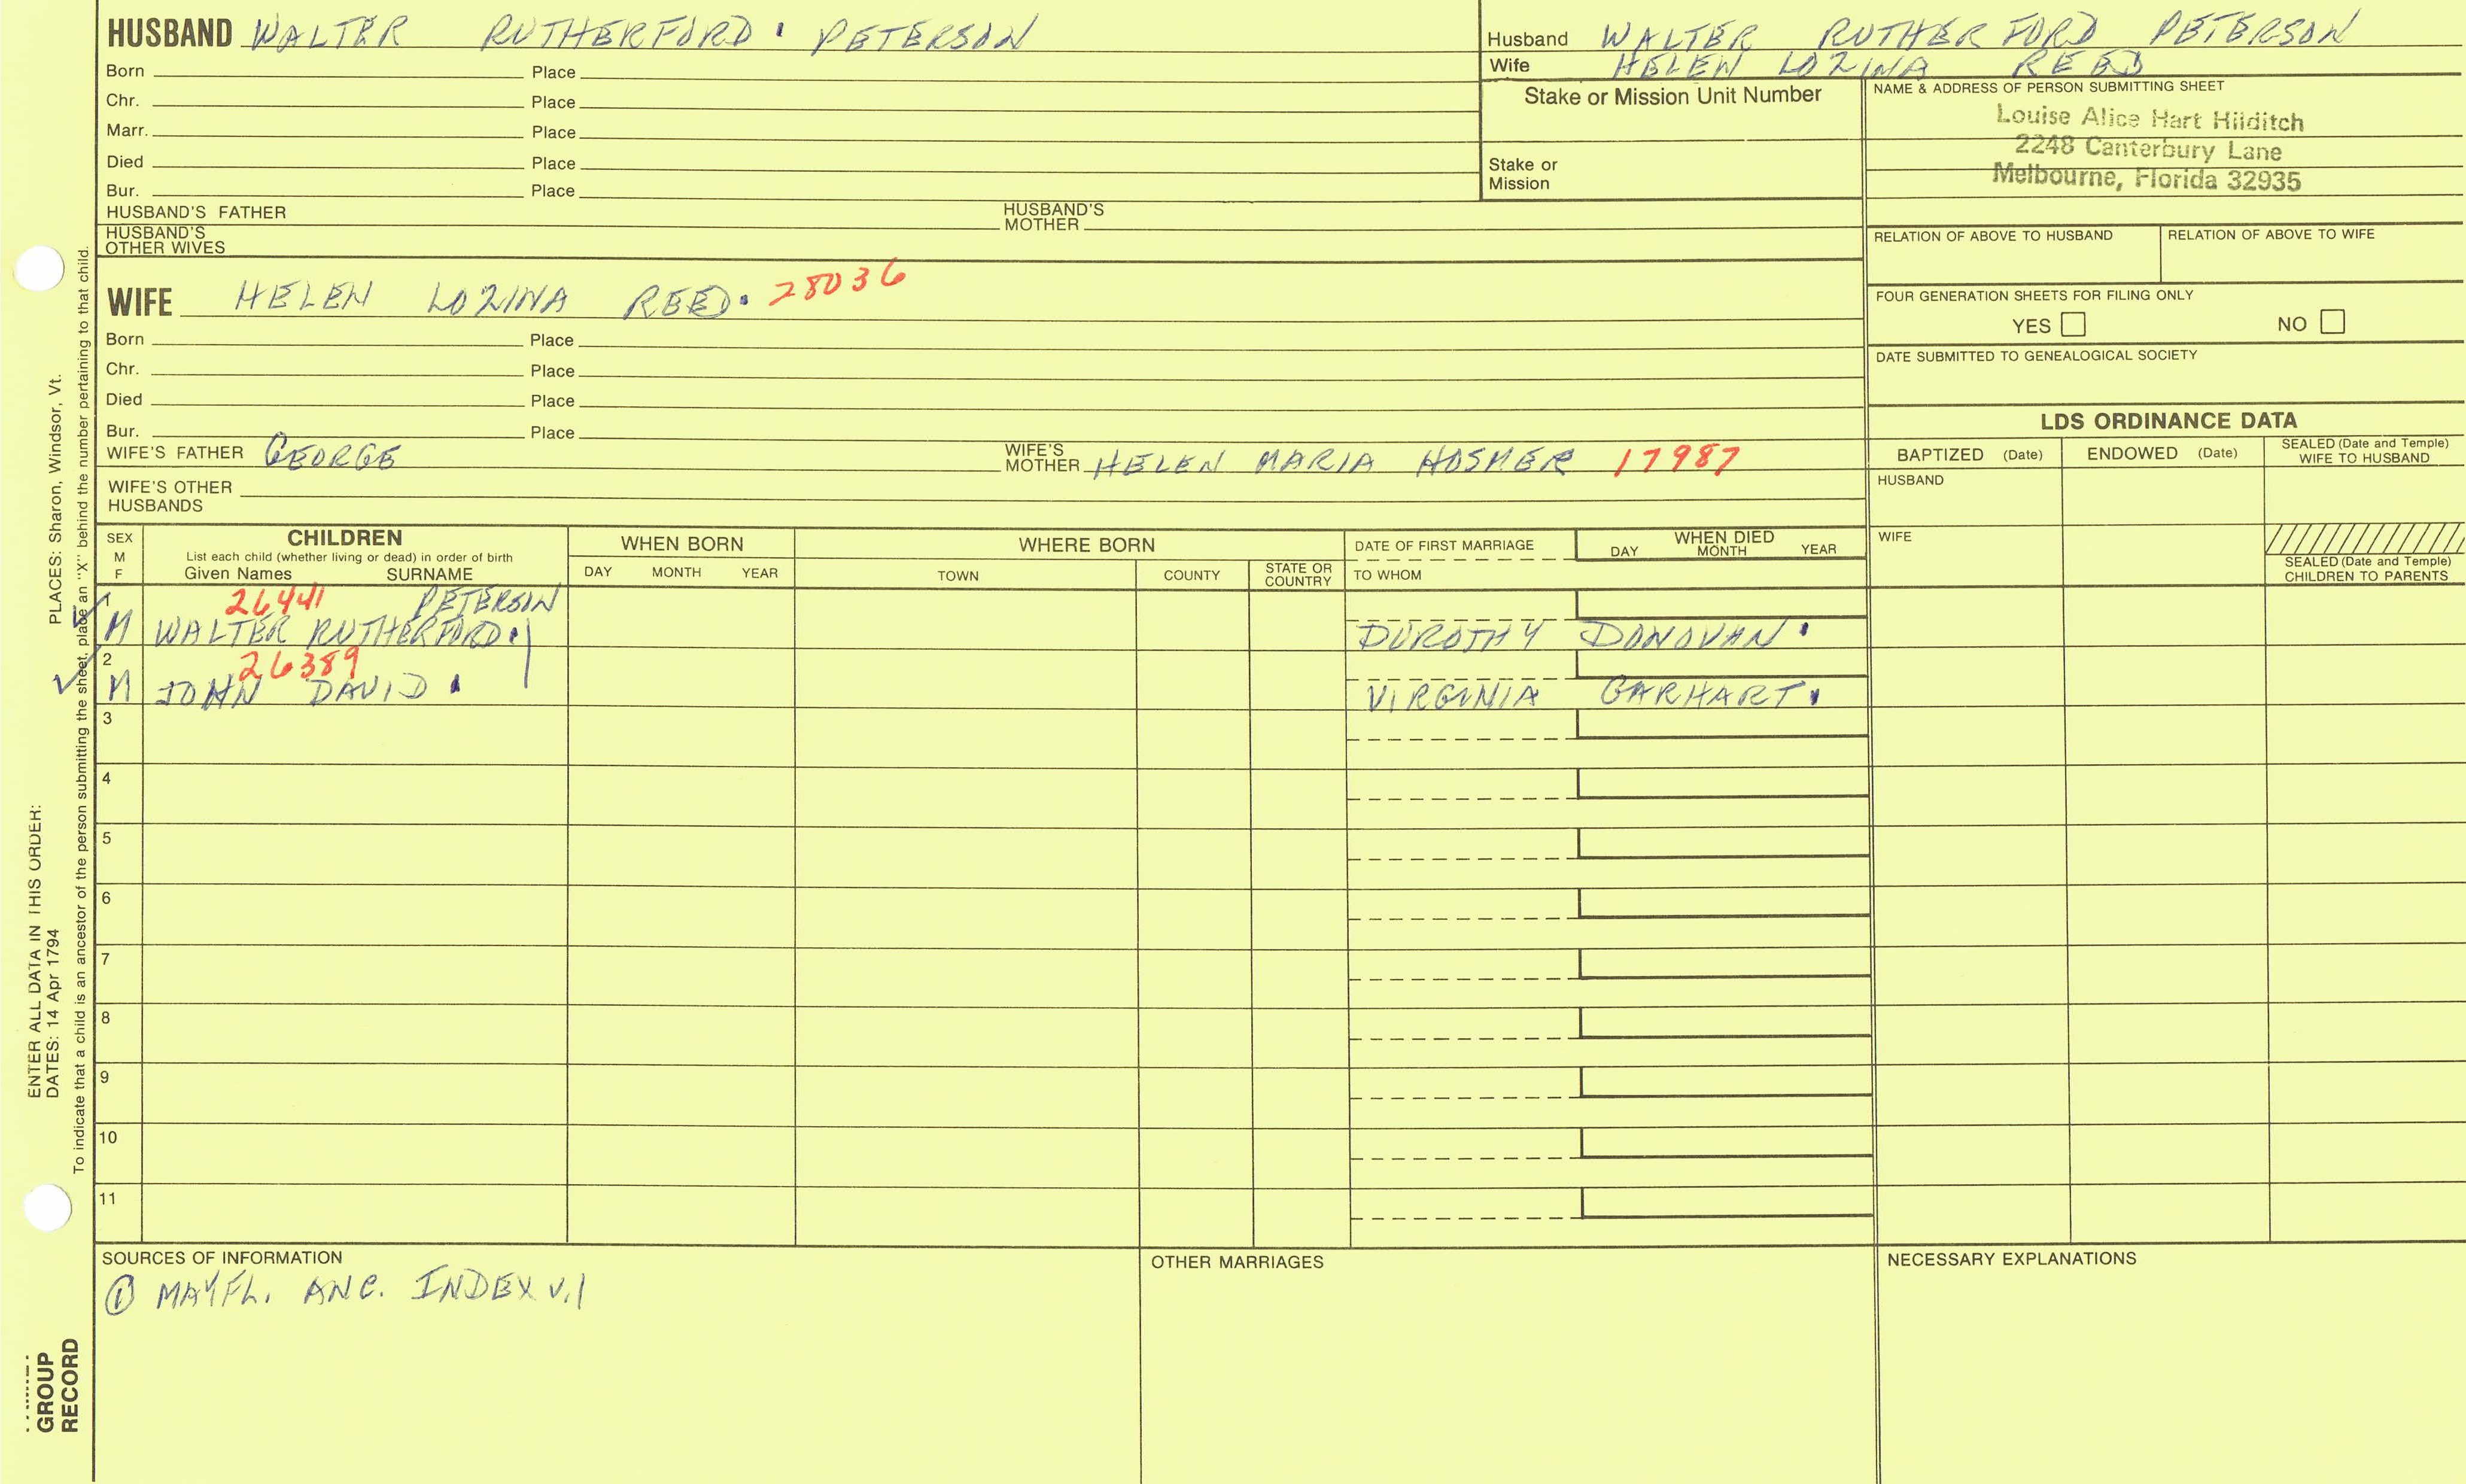 HUSBAND WALTER RUTHERFORD PETERSON
Born Place
Chr. Place
Marr. Place
Died Place
Bur. Place
HUSBAND'S FATHER HUSBAND'S MOTHER
HUSBAND'S OTHER WIVES
Husband WALTER RUTHERFORD PETERSON
Wife HELEN LOZINA REED
Stake or Mission Unit Number
Stake or Mission
NAME & ADDRESS OF PERSON SUBMITTING SHEET
Louise Alice Hart Hilditch
2248 Canterbury Lane
Melbourne, Florida 32935
RELATION OF ABOVE TO HUSBAND RELATION OF ABOVE TO WIFE
FOUR GENERATION SHEETS FOR FILING ONLY
YES NO
DATE SUBMITTED TO GENEALOGICAL SOCIETY
WIFE HELEN LOZINA REED 28036
Born Place
Chr. Place
Died Place
Bur. Place
WIFE'S FATHER GEORGE WIFE'S MOTHER HELEN MARIA HOSMER 17987
WIFE'S OTHER HUSBANDS
LDS ORDINANCE DATA
BAPTIZED (Date) ENDOWED (Date) SEALED (Date and Temple) WIFE TO HUSBAND
HUSBAND
WIFE
SEALED (Date and Temple) CHILDREN TO PARENTS
SEX M F
CHILDREN
List each child (whether living or dead) in order of birth
Given Names SURNAME
WHEN BORN
DAY MONTH YEAR
WHERE BORN
TOWN COUNTY STATE OR COUNTRY
DATE OF FIRST MARRIAGE
TO WHOM
WHEN DIED
DAY MONTH YEAR
1 26441 PETERSON
M WALTER RUTHERFORD DOROTHY DONOVAN
2 26389
M JOHN DAVID VIRGINIA GARHART
3
4
5
6
7
8
9
10
11
SOURCES OF INFORMATION
① MAYFL. ANC. INDEX v.1
OTHER MARRIAGES
NECESSARY EXPLANATIONS
ENTER ALL DATA IN THIS ORDER:
DATES: 14 Apr 1794 PLACES: Sharon, Windsor, Vt.
To indicate that a child is an ancestor of the person submitting the sheet, place an "X" behind the number pertaining to that child.
GROUP
RECORD